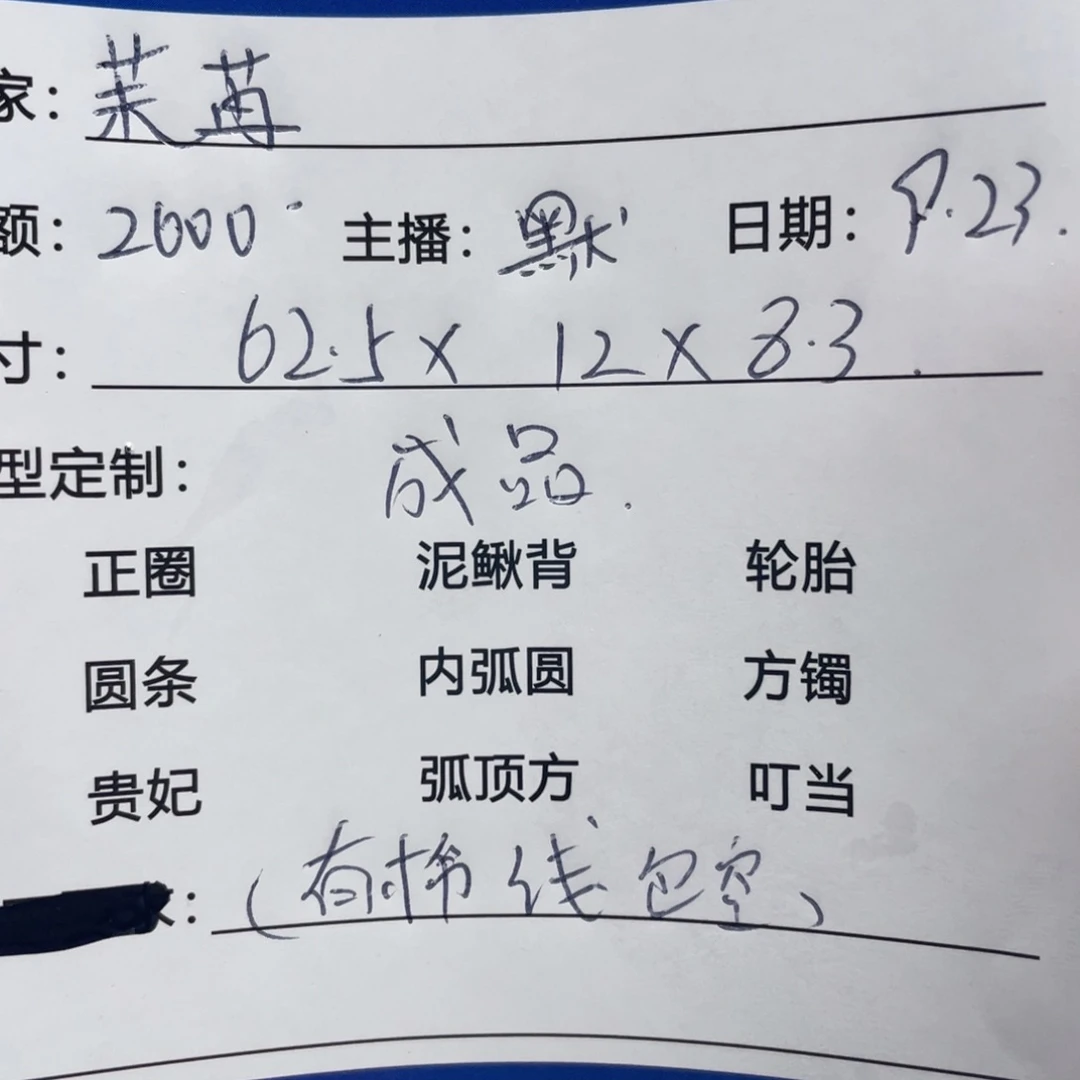 家：茉苒
额：2600 主播：默 日期：9.23.
寸： 62.5 x 12 x 8.3.
型定制： 成品.
正圈 泥鳅背 轮胎
圆条 内弧圆 方镯
贵妃 弧顶方 叮当
：（有棉线包空）